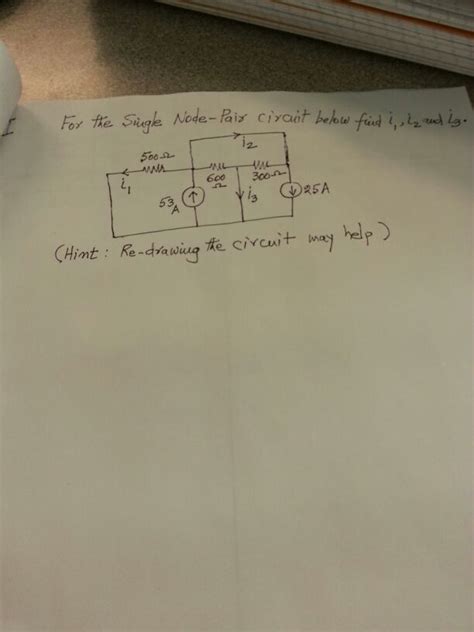 I
For the Single Node-Pair circuit below find i₁, i₂ and i₃.
i₂
500Ω
600 Ω
300Ω
i₁
53 A
i₃
25A
(Hint: Re-drawing the circuit may help)